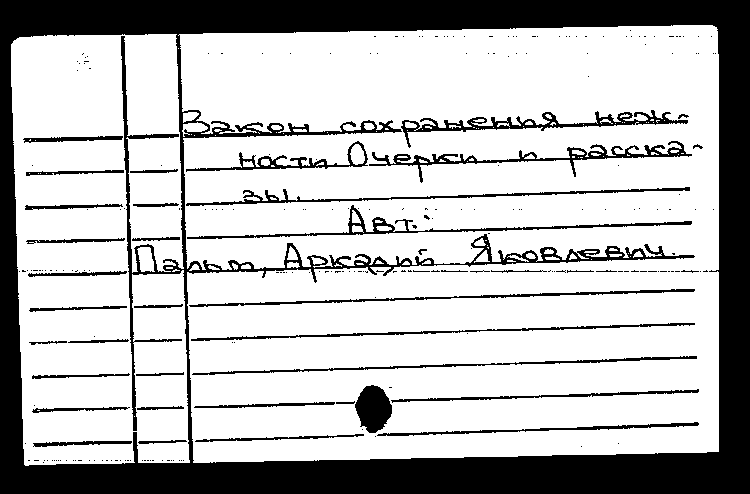 Закон сохранения неж-
ности. Очерки и расска-
зы.
Авт.:
Пальм, Аркадий Яковлевич.